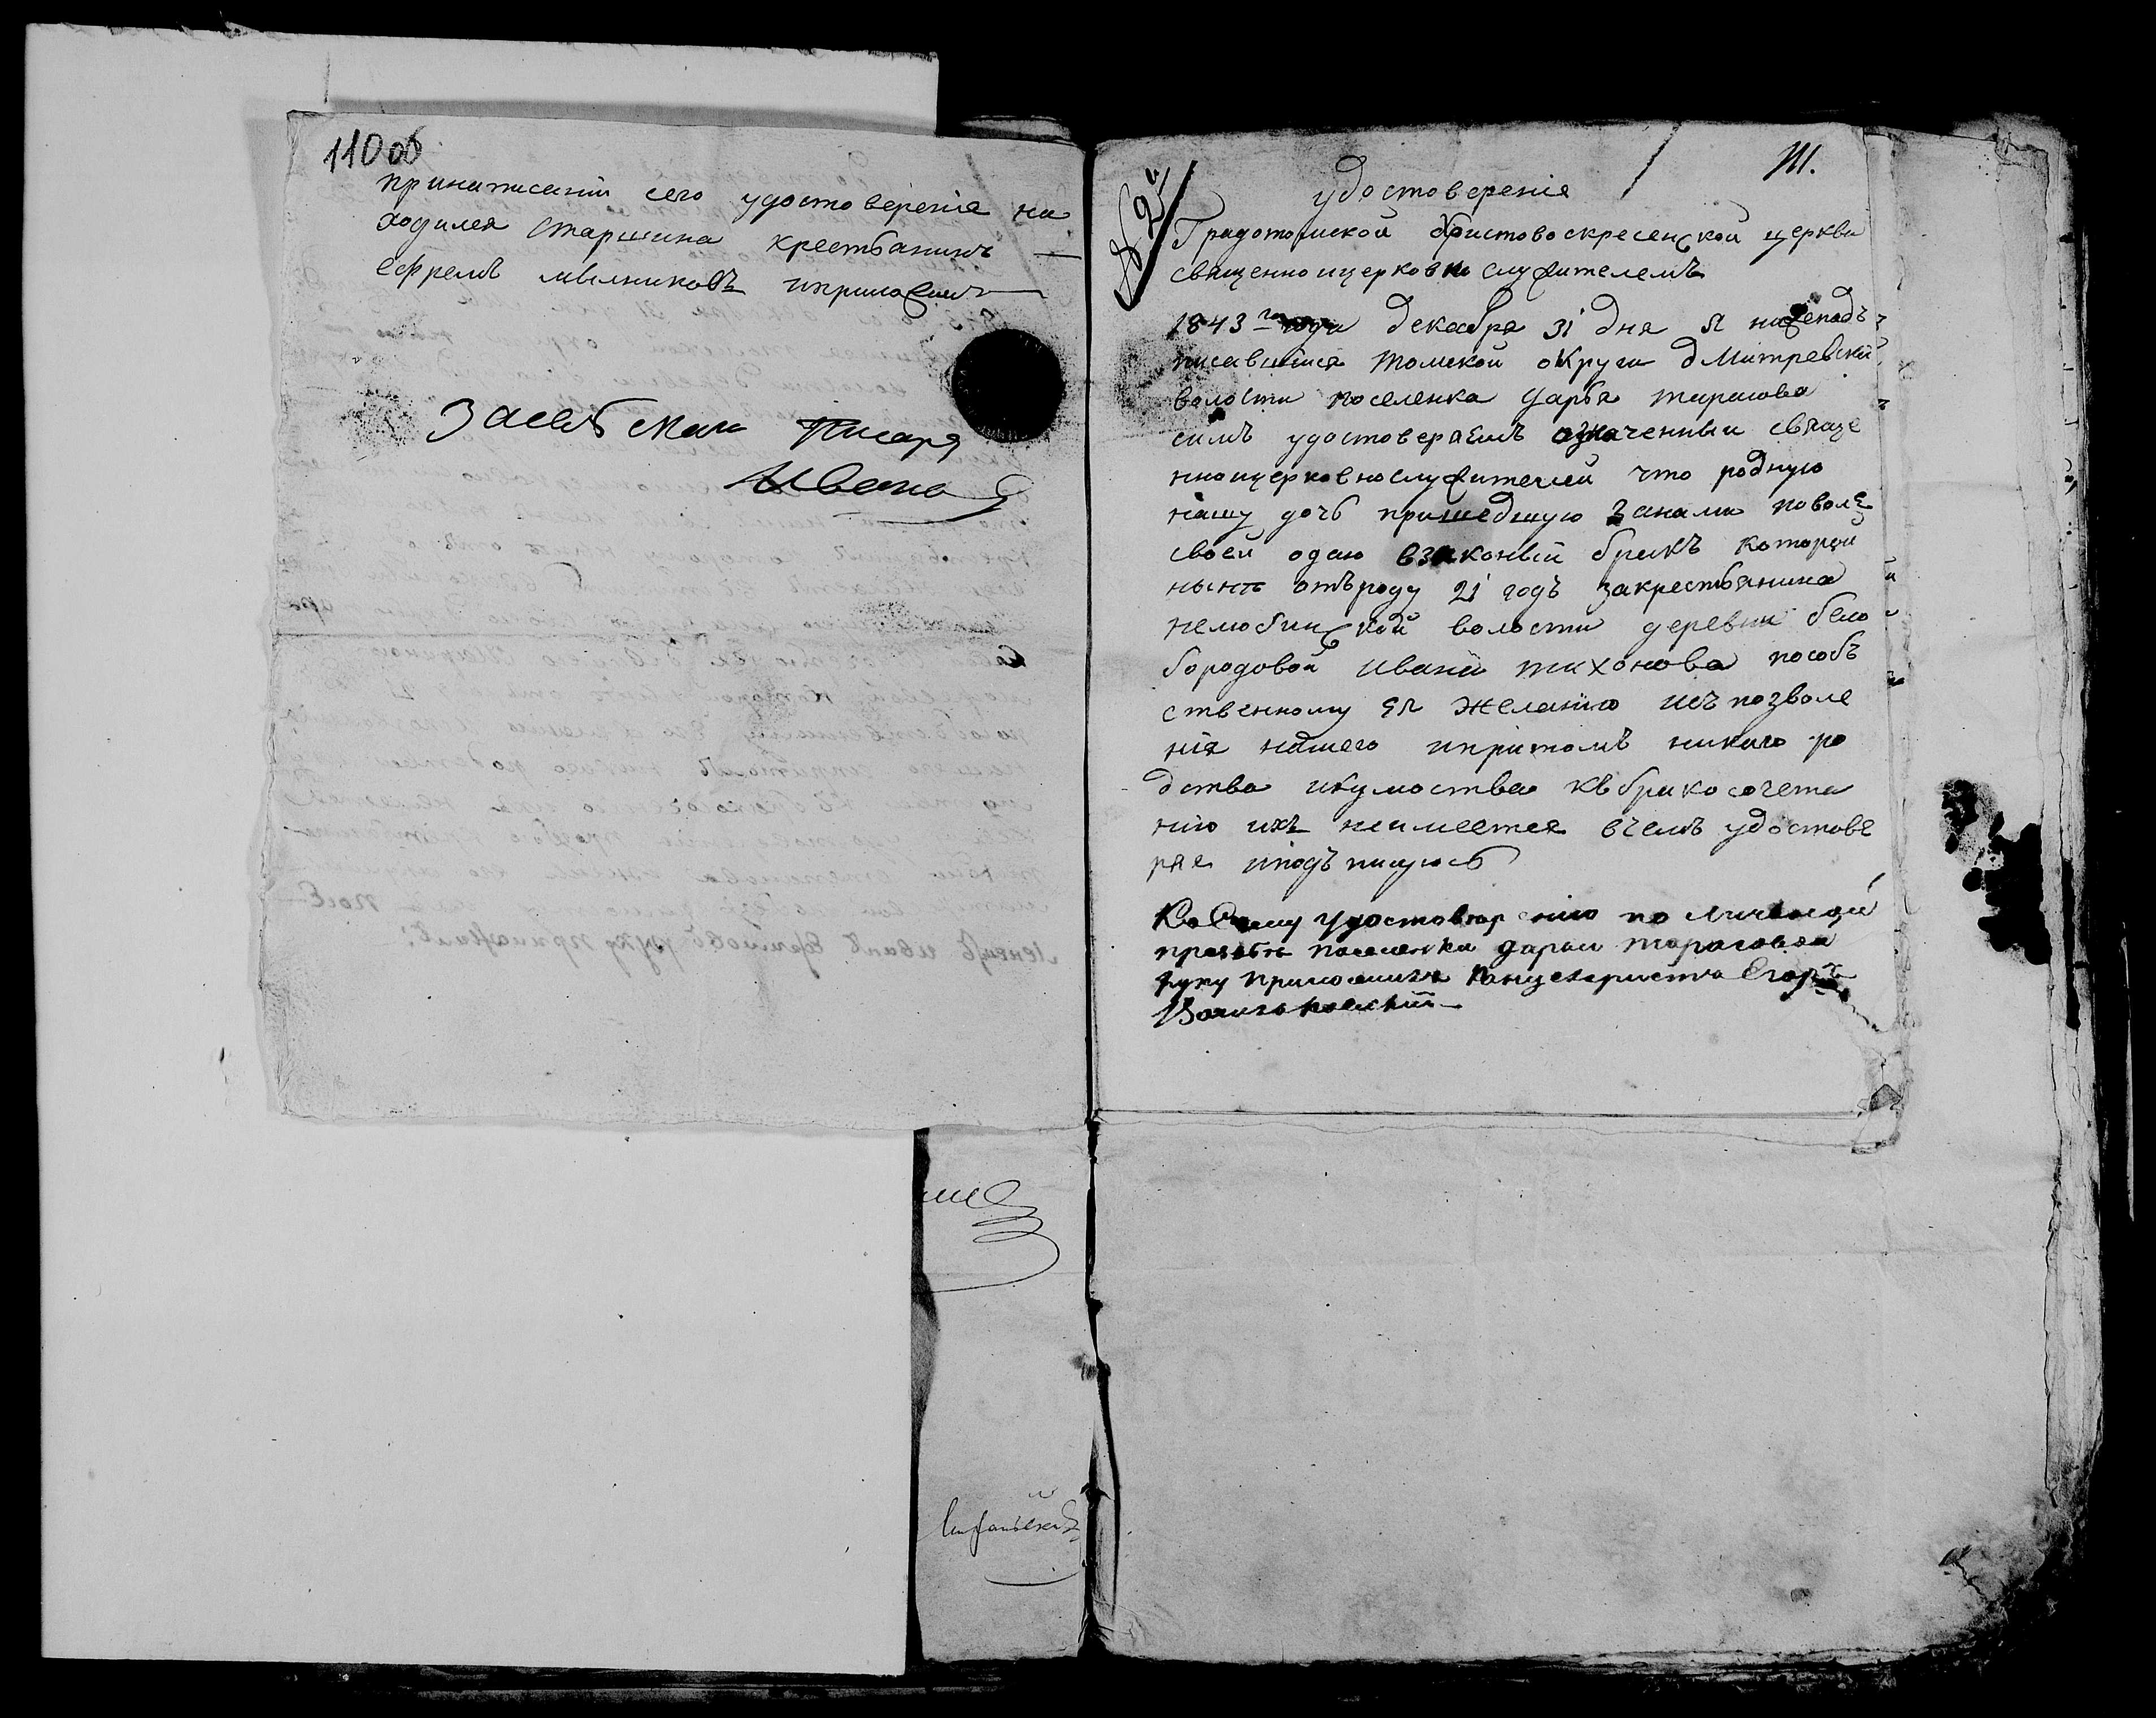 110 об
принаписании сего удостоверения на
ходился старшина крестьянинъ
ефремъ мельниковъ иприложилъ
Засельскаго Писаря
Ивано
111.
№ 24
удостоверения
Градотомской Христовоскресенской церкви
священноицерковно служителемъ
1843 го года декабря 31 дня я нижеподъ
писавшиея томской округи дмитревской
волости поселенка дарья тарасова
симъ удостоверяемъ означенныи свяще
нноицерковнослужителей что родную
нашу дочь пришедшую занами поволе
своей одаю взаконый бракъ которой
нынѣ отъроду 21 годъ закрестьянина
нелюбинской волости деревни бело
бородовой ивана тихонова пособъ
ственному ея желанию исъ позволе
ния нашего ипритомъ никаго ро
дства икумоства къ бракосочета
нию ихъ неимеется вчемъ удостове
ряе иподъ писуюсь
Ко сему удостоверению по личьной
прозьбѣ поселенки дарьи тарасовой
руку приложилъ канцеляристъ Егоръ